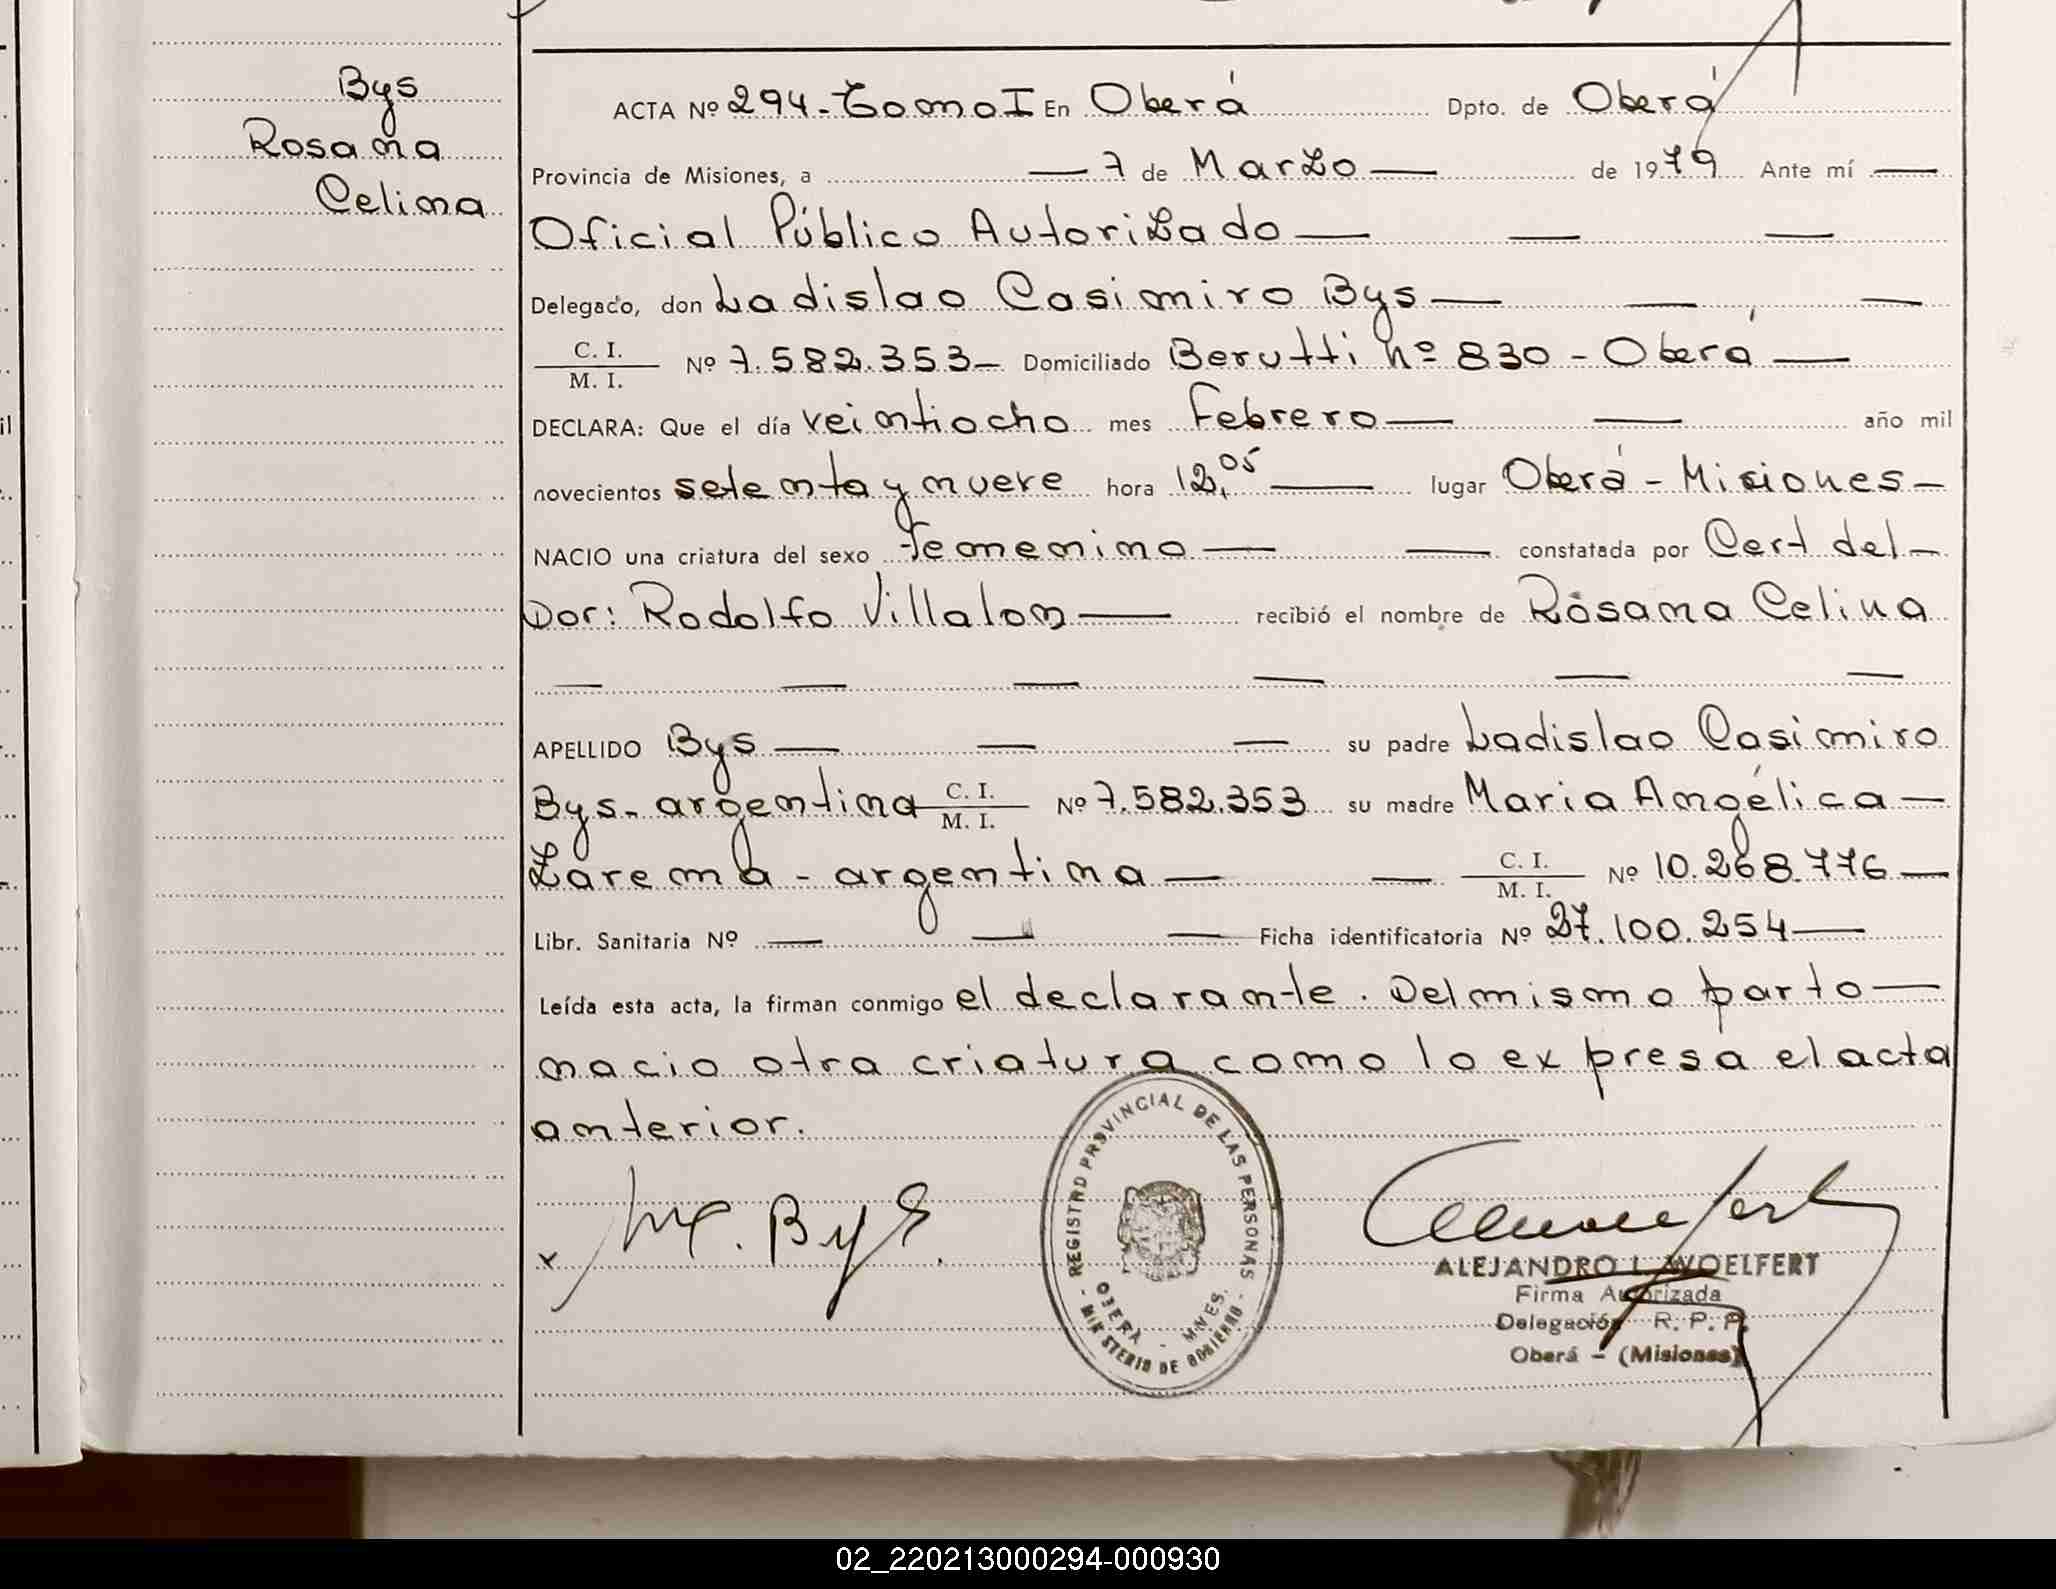 Bys
Rosana
Celina
ACTA Nº 294-Tomo I En Oberá Dpto. de Oberá
Provincia de Misiones, a — 7 de Marzo — de 1979 Ante mí —
Oficial Público Autorizado — — —
Delegado, don Ladislao Casimiro Bys — — —
C. I. / M. I. Nº 7.582.353- Domiciliado Berutti nº 830 - Oberá —
DECLARA: Que el día veintiocho mes Febrero — — año mil
novecientos setenta y nueve hora 12,05 — lugar Oberá - Misiones -
NACIO una criatura del sexo femenino — — constatada por Cert del -
Dor: Rodolfo Villalon — recibió el nombre de Rosana Celina
— — — — — —
APELLIDO Bys — — — su padre Ladislao Casimiro
Bys- argentina C. I. / M. I. Nº 7.582.353 su madre Maria Angélica -
Zarema - argentina — — C. I. / M. I. Nº 10.268.776 —
Libr. Sanitaria Nº — — — Ficha identificatoria Nº 27.100.254 —
Leída esta acta, la firman conmigo el declarante. Del mismo parto —
nacio otra criatura como lo expresa el acta
anterior.
x Bys.
REGISTRO PROVINCIAL DE LAS PERSONAS
OBERA - MNES.
- MINISTERIO DE GOBIERNO -
ALEJANDRO L. WOELFERT
Firma Autorizada
Delegación R. P. P.
Oberá - (Misiones)
02_220213000294-000930